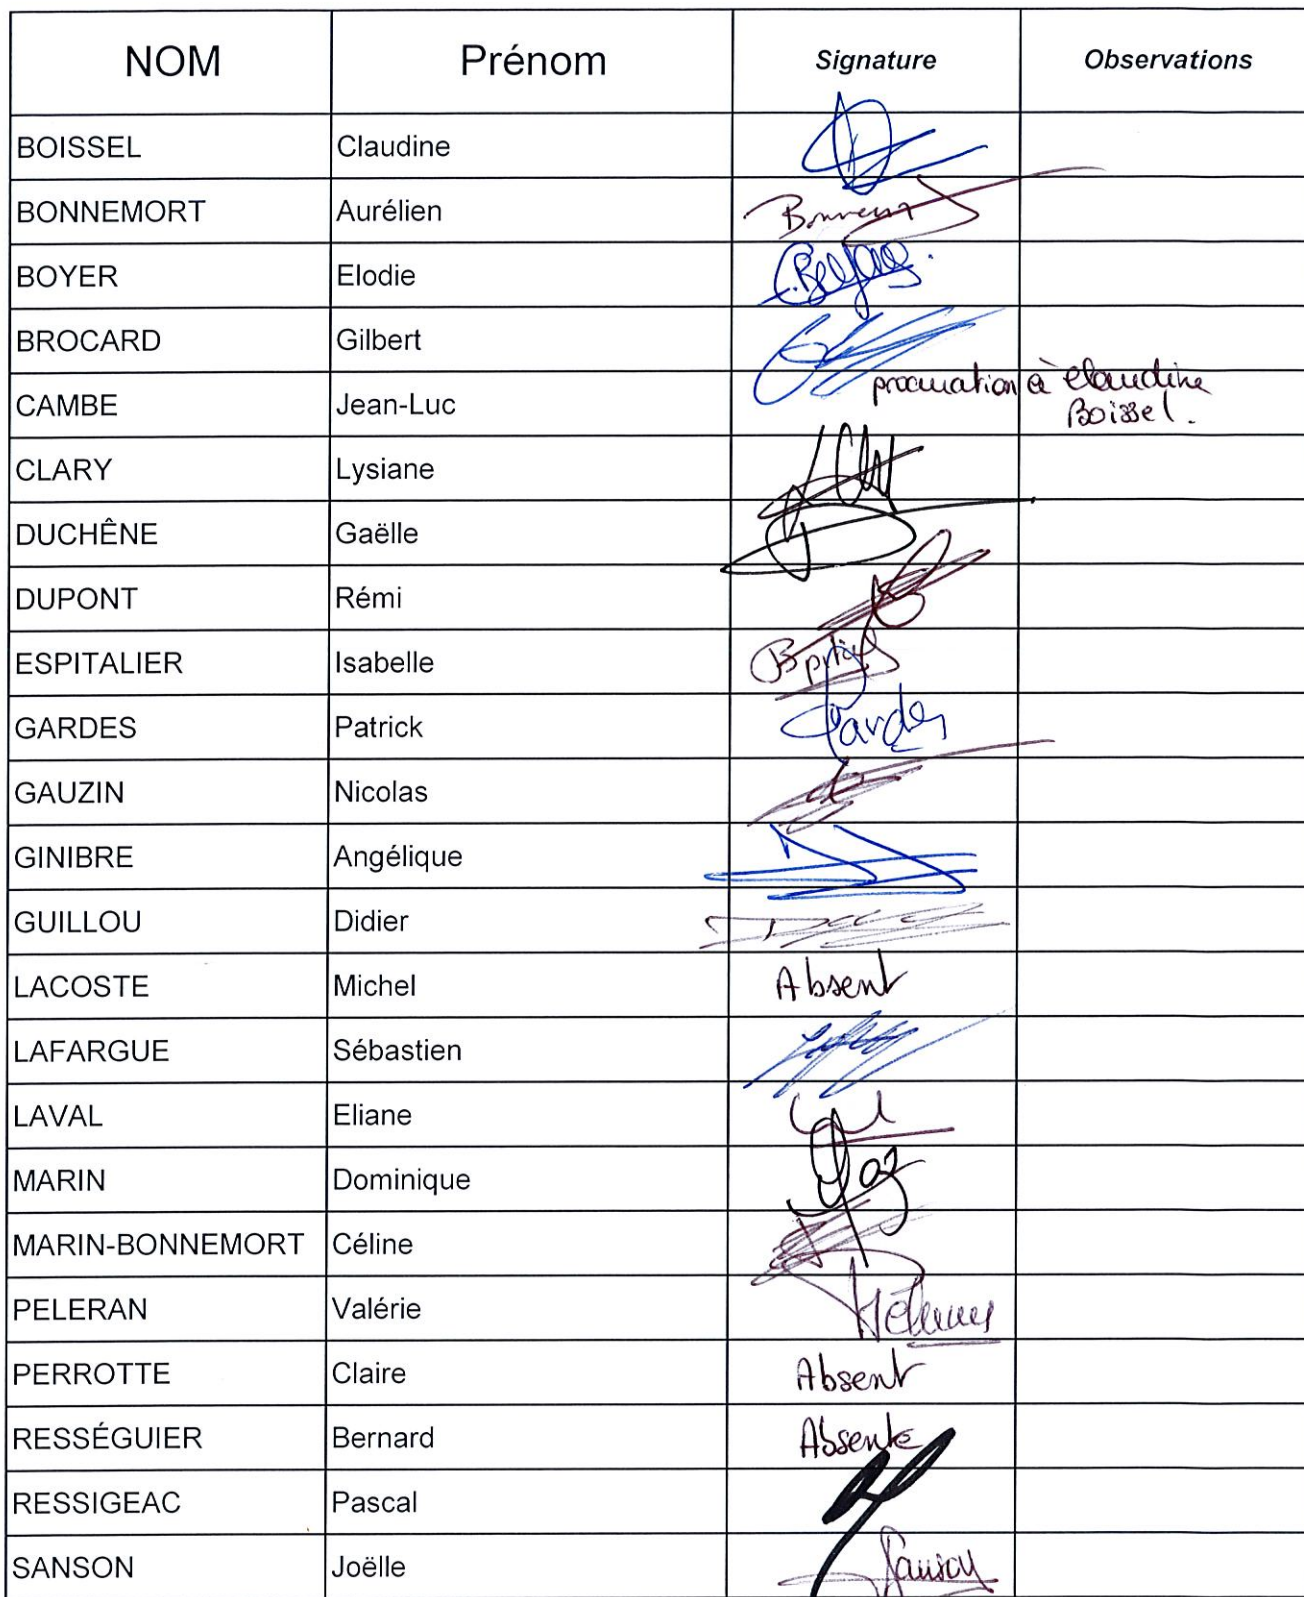 NOM Prénom Signature Observations
BOISSEL Claudine
BONNEMORT Aurélien
BOYER Elodie
BROCARD Gilbert
CAMBE Jean-Luc procuration à Claudine
Boissel.
CLARY Lysiane
DUCHÊNE Gaëlle
DUPONT Rémi
ESPITALIER Isabelle
GARDES Patrick Gardes
GAUZIN Nicolas
GINIBRE Angélique
GUILLOU Didier
LACOSTE Michel Absent
LAFARGUE Sébastien
LAVAL Eliane
MARIN Dominique
MARIN-BONNEMORT Céline
PELERAN Valérie
PERROTTE Claire Absent
RESSÉGUIER Bernard Absente
RESSIGEAC Pascal
SANSON Joëlle